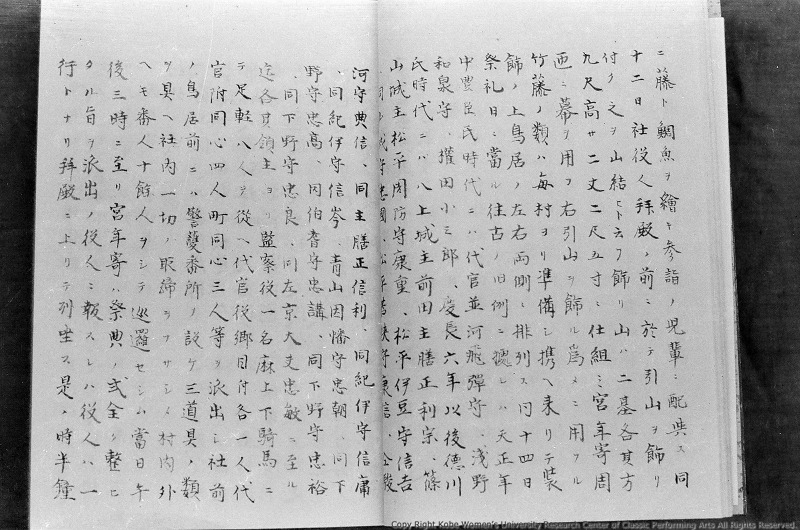 ニ藤ト鯛魚ヲ繪キ参詣ノ児輩ニ配與ス同
十二日社役人拜殿ノ前ニ於テ引山ヲ飾リ
付ク之ヲ山結ヒト云フ飾リ山ハ二基各其方
九尺高サ二丈二尺五寸ニ仕組ミ宮年寄周
ニ幕ヲ用フ右引山ヲ飾ル爲メニ用フル
竹藤ノ類ハ毎村ヨリ準備シ携ヘ来リテ装
飾ノ上鳥居ノ左右両側ニ排列ス同十四日
祭礼日ニ當ル往古ノ旧例ニ據レハ天正年
中豊臣氏時代ニハ代官並河飛彈守、浅野
和泉守、權田小三郎、慶長六年以後德川
氏時代ニハ八上城主前田主膳正利宗、篠
山城主松平周防守康重、松平伊豆守信吉
守忠國、松平 守康信、仝
河守典信、同主膳正信利、同紀伊守信庸
、同紀伊守信岑、青山因幡守忠朝、同下
野守忠高、同伯耆守忠講、同下野守忠裕
、同下野守忠良、同左京大夫忠敏ニ至ル
迄各其領主ヨリ監察後一名麻上下騎馬ニ
テ足軽八人ヲ從ヘ代官後郷目付各一人代
官附同心四人町同心三人等ヲ派出シ社前
ノ鳥居前ニハ警護番所ノ設ケ三道具ノ類
ヲ具ヘ社内一切ノ取締ヲナサシメ村内外
ヘモ番人十餘人ヲシテ巡邏セシム當日午
後三時ニ至リ宮年寄ハ祭典ノ式全ク整ヒ
タル旨ヲ派出ノ役人ニ報スレハ役人ハ一
行トナリ拜殿ニ上リテ列坐ス是ノ時半鐘
Copy Right Kobe Women's University Research Center of Classic Performing Arts All Rights Reserved.